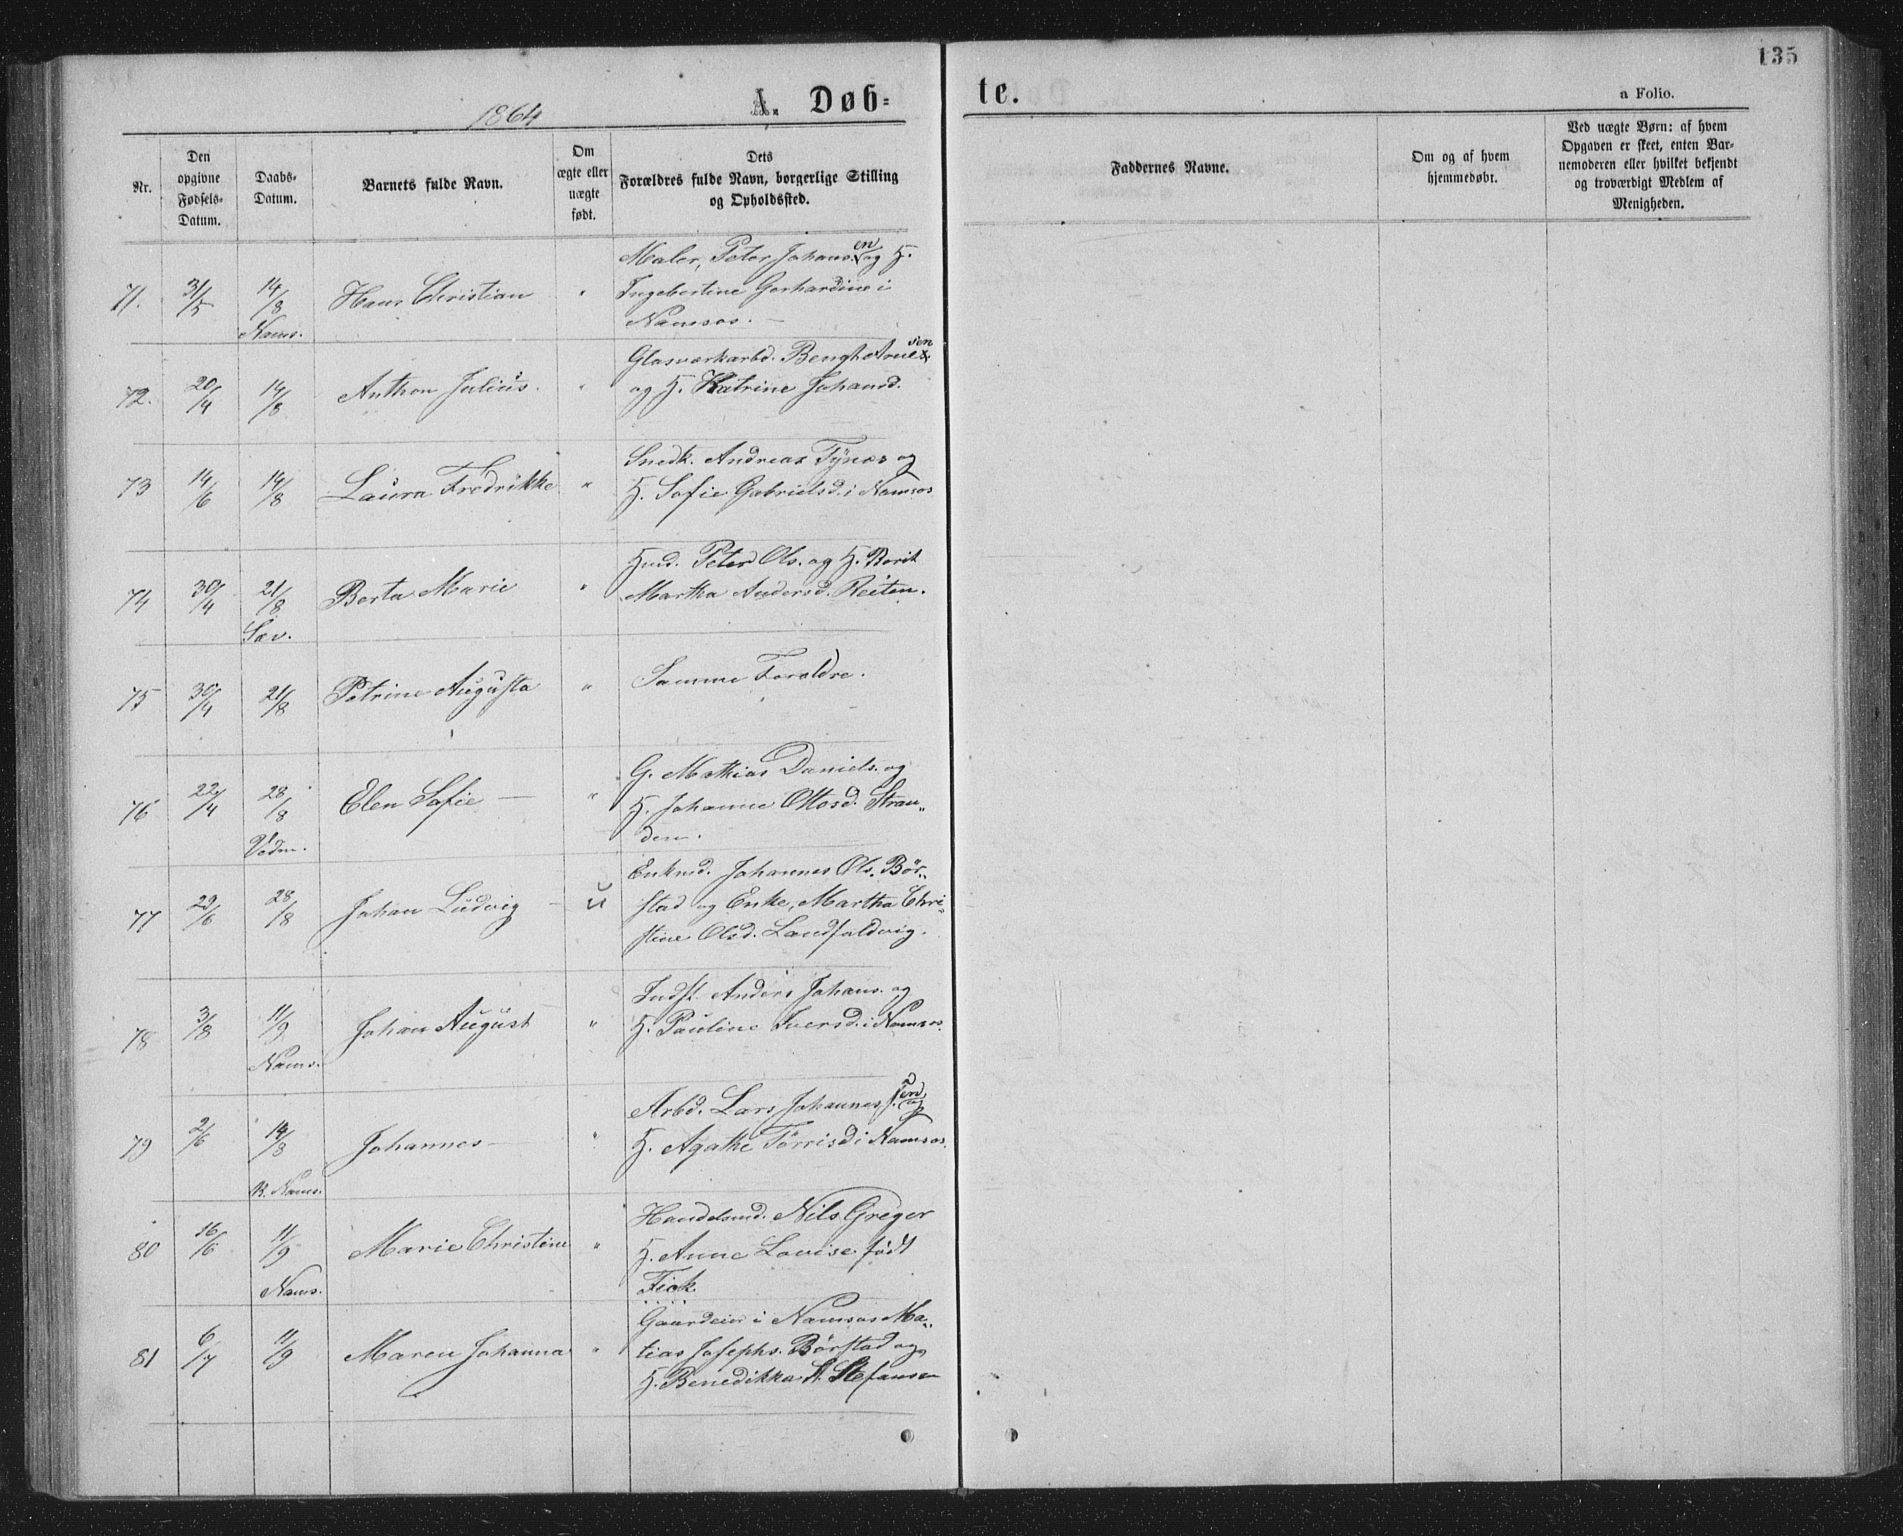 135
1864
A. Døb=
te.
a Folio.
Nr.
Den opgivne Fødsels-Datum.
Daabs-Datum.
Barnets fulde Navn.
Om ægte eller uægte født.
Dets Forældres fulde Navn, borgerlige Stilling og Opholdssted.
Faddernes Navne.
Om og af hvem hjemmedøbt.
Ved uægte Børn: af hvem Opgaven er skeet, enten Barnemoderen eller hvilket bekjendt og troværdigt Medlem af Menigheden.
Maler, Peter Johansen og H.
71. 31/5 14/8 Hans Christian " Ingebertine Gerhardine i
Nams. Namsos. —
Glasværkarbd. Bengt Arnesen
72. 20/4 14/8 Anthon Julius. " og H. Katrine Johansd.
Snedk. Andreas Tynæs og
73 14/6 14/8 Laura Fredrikke " H. Sofie Gabrielsd. i Namsos
Hmd. Peter Ols. og H. Berit
74 30/4 21/8 Berta Marie " Martha Andersd. Reiten.
Sæv.
75 30/4 21/8 Petrine Augusta " Samme Forældre.
G. Mathias Daniels. og
76 22/4 28/8 Elen Sofie — " H. Johanne Ottosd. Stran„
Vedm. den.
Enkmd. Johannes Ols. Bør„
77 29/6 28/8 Johan Ludvig — U stad og Enke, Martha Chri„
stine Olsd. Landfaldvig.
Indst. Anders Johans. og
78 3/8 11/9 Johan August " H. Pauline Iversd. i Namsos.
Nams.
Arbd. Lars Johannessen og
79 2/6 14/8 Johannes — " H. Agathe Tørrisd. i Namsos.
V. Nams.
Handelsmd. Nils Greger
80 16/6 11/9 Marie Christine " H. Anne Louise født
Nams. Fick
Gaardeier i Namsos Ma„
81 6/7 11/9 Maren Johanna " tias Josephs. Børstad og
H. Benedikka St. Stefansen